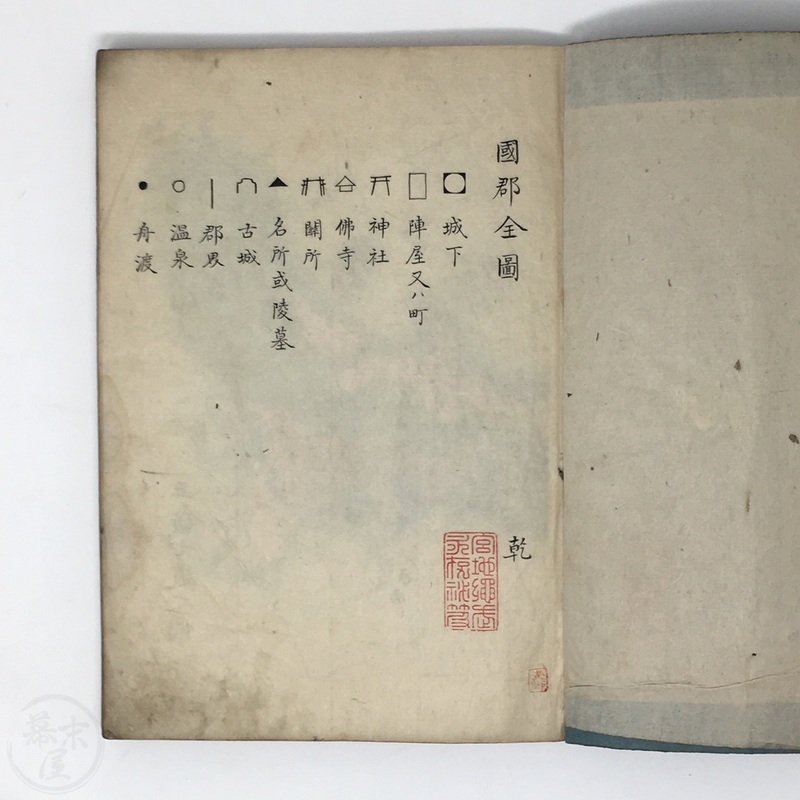 國郡全圖
乾
城下
陣屋又ハ町
神社
佛寺
關所
名所或陵墓
古城
郡界
温泉
舟渡
幕末屋